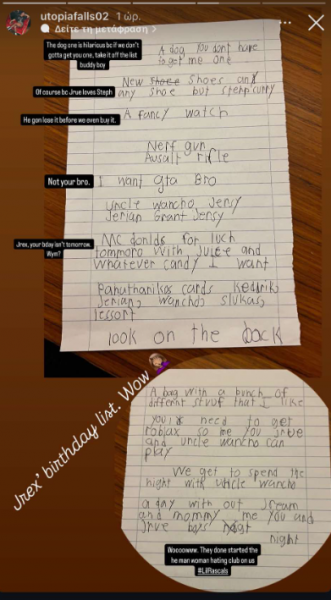 utopiafalls02 1 ώρ.
Δείτε τη μετάφραση >
The dog one is hilarious bc if we don't
gotta get you one, take it off the list
buddy boy
A dog you dont have
to get me one
New shoes and
any shoe but steph curry
Of course bc Jrue loves Steph
A fancy watch
He gon lose it before we even buy it.
Nerf gun
Ausalt rifle
Not your bro.
I want gta Bro
uncle wancho Jersy
Jerian Grant Jersy
Jrex, your bday isn't tomorrow.
Wym?
Mc donlds for luch
tommoro with Juice and
whatever candy I want
Panathanikos cards Kedrik,
Jerian, wancho, slukas,
lessort
look on the back
Jrex' birthday list. Wow
A bag with a bunch of
different stuof that I like
need to get
roblox so me you Jrue
and uncle wancho can
play
We get to spend the
night with uncle wancho
a day with out Jream
and mommy me you and
Jrue boys
night
Wooowww. They done started the
he man woman hating club on us
#LilRascals